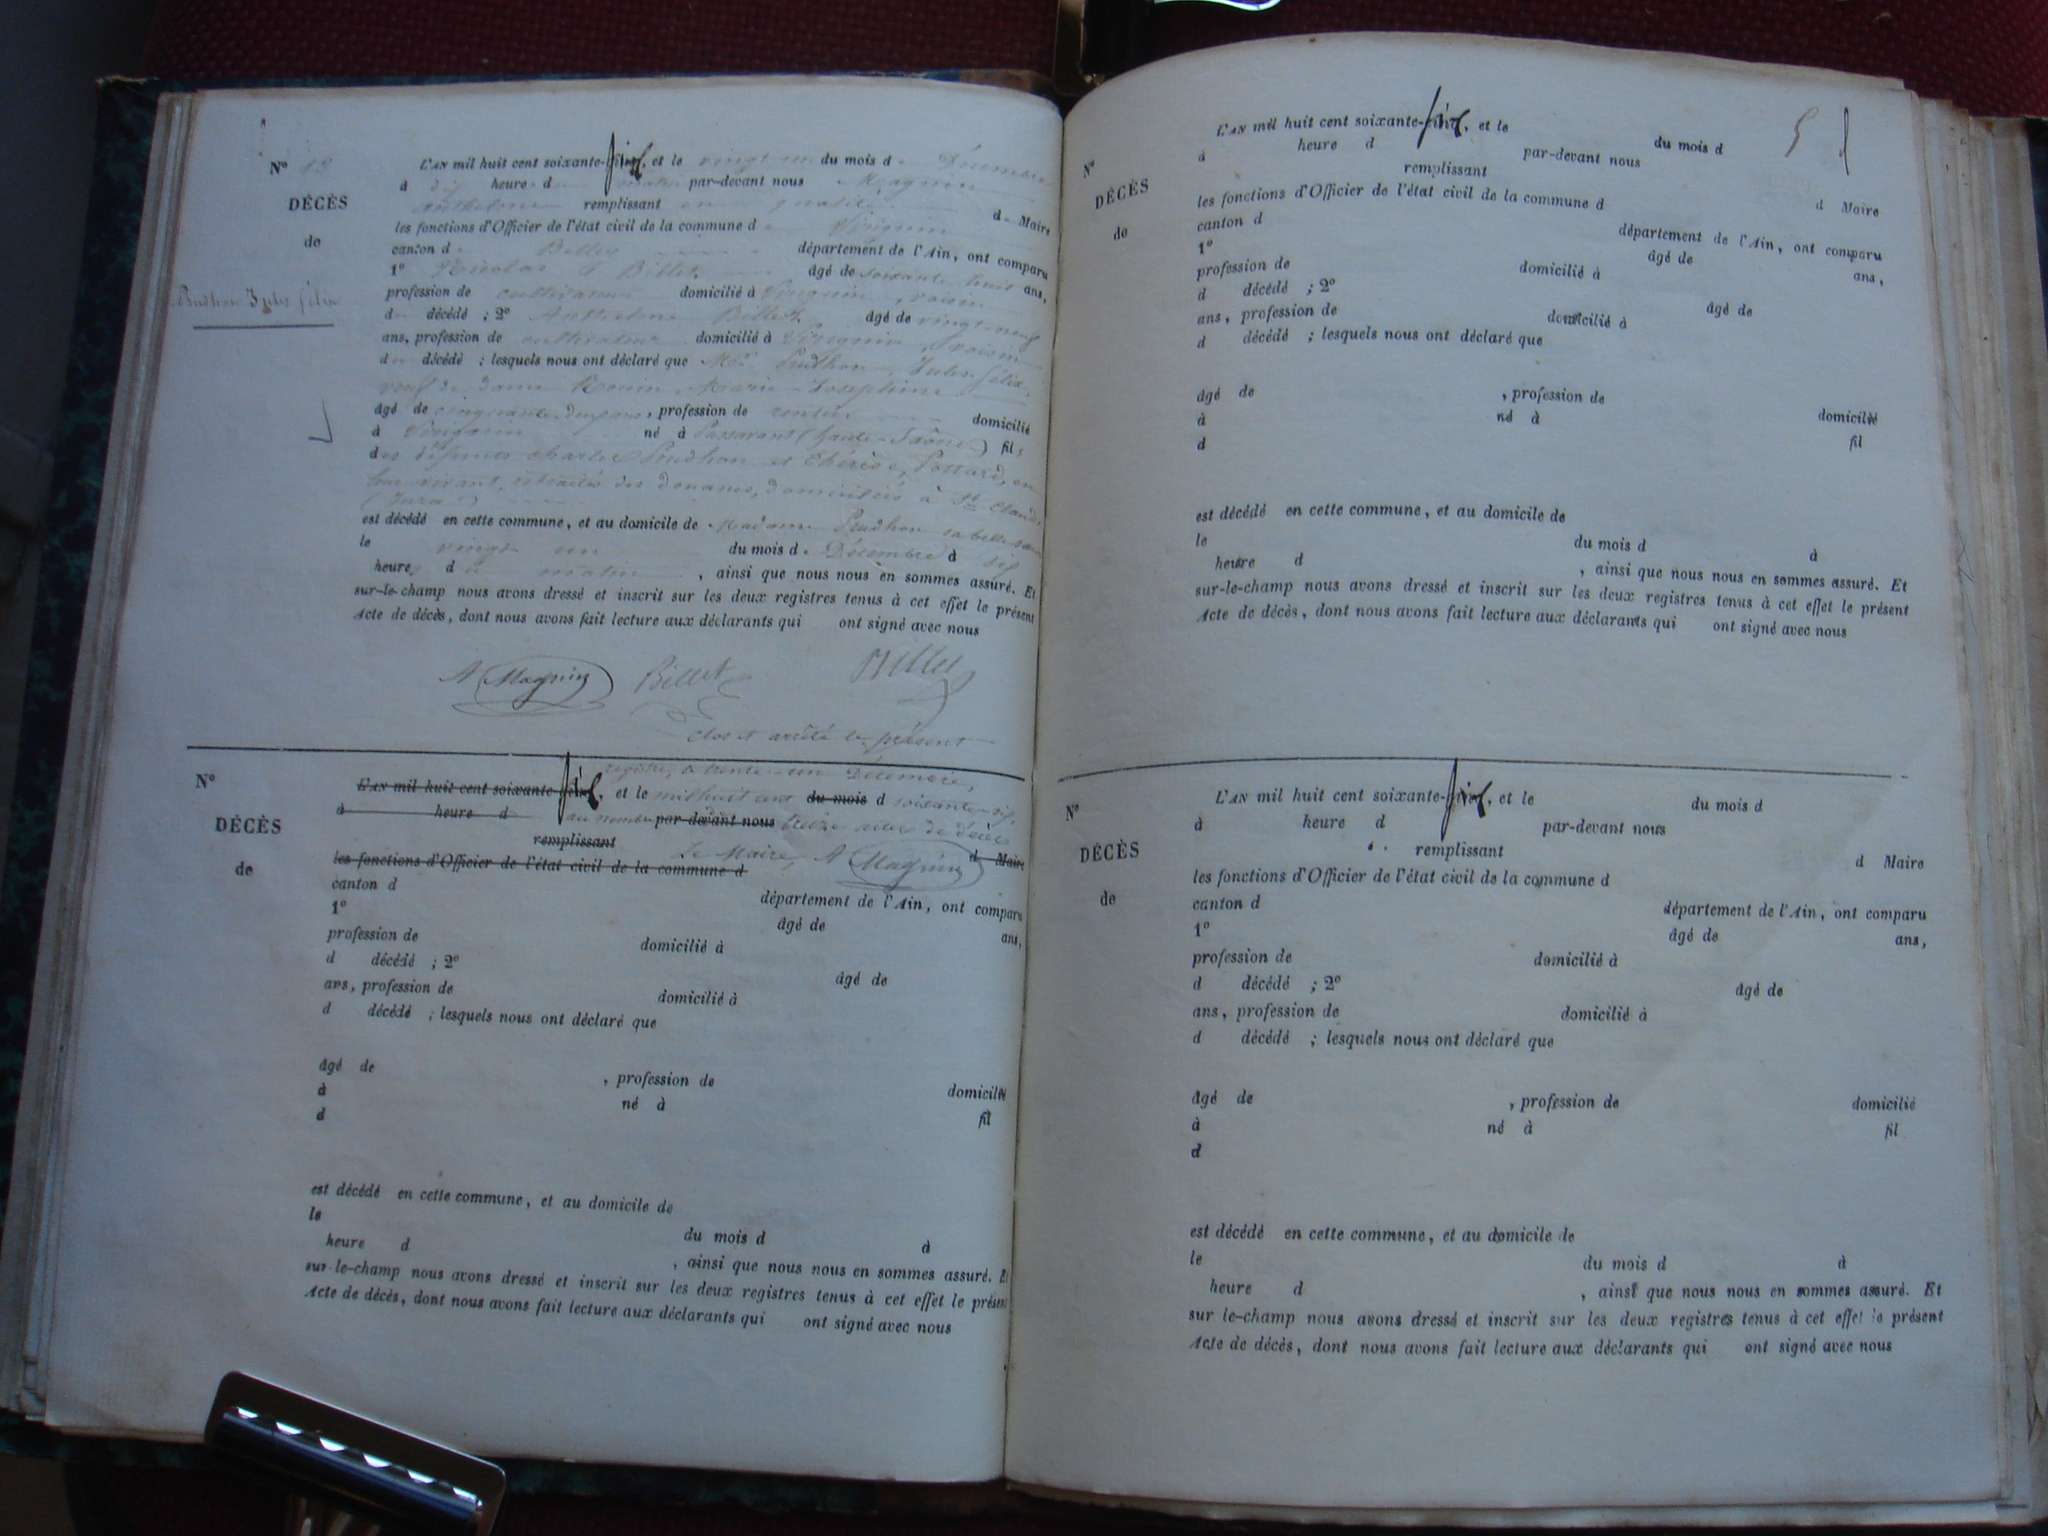 N° 13
DÉCÈS
de
Prudhon Jules félix
L'AN mil huit cent soixante-six, et le vingt un du mois d Décembre
à dix heure d matin par-devant nous Magnin
Anthelme remplissant en qualité d Maire
les fonctions d'Officier de l'état civil de la commune d Virignin
canton d Belley département de l'Ain, ont comparu
1° Nicolas Billet âgé de soixante huit ans,
profession de cultivateur domicilié à Virignin, voisin
d décédé ; 2° Anthelme Billet âgé de vingt-neuf
ans, profession de cultivateur domicilié à Virignin, voisin
d décédé ; lesquels nous ont déclaré que Prudhon, Jules félix
veuf de dame Marie-Joséphine
âgé de cinquante-deux ans, profession de rentier domicilié
à Virignin né à Passavant (haute-Saône) fils
des défunts charles Prudhon et Thérèse, en
leur vivant, retraités des douanes, domiciliés à St Claude
(Jura)
est décédé en cette commune, et au domicile de Madame Prudhon sa belle-sœur
le vingt un du mois d Décembre à six
heure, d matin, ainsi que nous nous en sommes assuré. Et
sur-le-champ nous avons dressé et inscrit sur les deux registres tenus à cet effet le présent
Acte de décès, dont nous avons fait lecture aux déclarants qui ont signé avec nous
A Magnin Billet Billet
Clos et arrêté le présent
registre, le trente-un Décembre,
N°
DÉCÈS
de
L'AN mil huit cent soixante-six, et le mil huit cent du mois d soixante-six,
à heure d au nombre par-devant nous treize actes de décès
remplissant Le Maire, A Magnin d Maire
les fonctions d'Officier de l'état civil de la commune d
canton d département de l'Ain, ont comparu
1° âgé de ans,
profession de domicilié à
d décédé ; 2° âgé de
ans, profession de domicilié à
d décédé ; lesquels nous ont déclaré que
âgé de , profession de domicilié
à né à fil
d
est décédé en cette commune, et au domicile de
le du mois d à
heure d , ainsi que nous nous en sommes assuré. Et
sur-le-champ nous avons dressé et inscrit sur les deux registres tenus à cet effet le présent
Acte de décès, dont nous avons fait lecture aux déclarants qui ont signé avec nous
5
N°
DÉCÈS
de
L'AN mil huit cent soixante-six, et le du mois d
à heure d par-devant nous
remplissant d Maire
les fonctions d'Officier de l'état civil de la commune d
canton d département de l'Ain, ont comparu
1° âgé de ans,
profession de domicilié à
d décédé ; 2° âgé de
ans, profession de domicilié à
d décédé ; lesquels nous ont déclaré que
âgé de , profession de domicilié
à né à fil
d
est décédé en cette commune, et au domicile de
le du mois d à
heure d , ainsi que nous nous en sommes assuré. Et
sur-le-champ nous avons dressé et inscrit sur les deux registres tenus à cet effet le présent
Acte de décès, dont nous avons fait lecture aux déclarants qui ont signé avec nous
N°
DÉCÈS
de
L'AN mil huit cent soixante-six, et le du mois d
à heure d par-devant nous
remplissant d Maire
les fonctions d'Officier de l'état civil de la commune d
canton d département de l'Ain, ont comparu
1° âgé de ans,
profession de domicilié à
d décédé ; 2° âgé de
ans, profession de domicilié à
d décédé ; lesquels nous ont déclaré que
âgé de , profession de domicilié
à né à fil
d
est décédé en cette commune, et au domicile de
le du mois d à
heure d , ainsi que nous nous en sommes assuré. Et
sur le-champ nous avons dressé et inscrit sur les deux registres tenus à cet effet le présent
Acte de décès, dont nous avons fait lecture aux déclarants qui ont signé avec nous